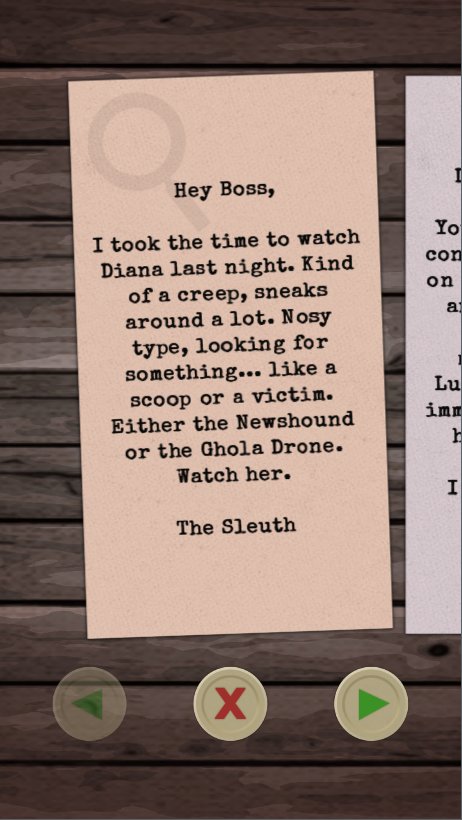 Hey Boss,
I took the time to watch
Diana last night. Kind
of a creep, sneaks
around a lot. Nosy
type, looking for
something... like a
scoop or a victim.
Either the Newshound
or the Ghola Drone.
Watch her.
The Sleuth
on
I